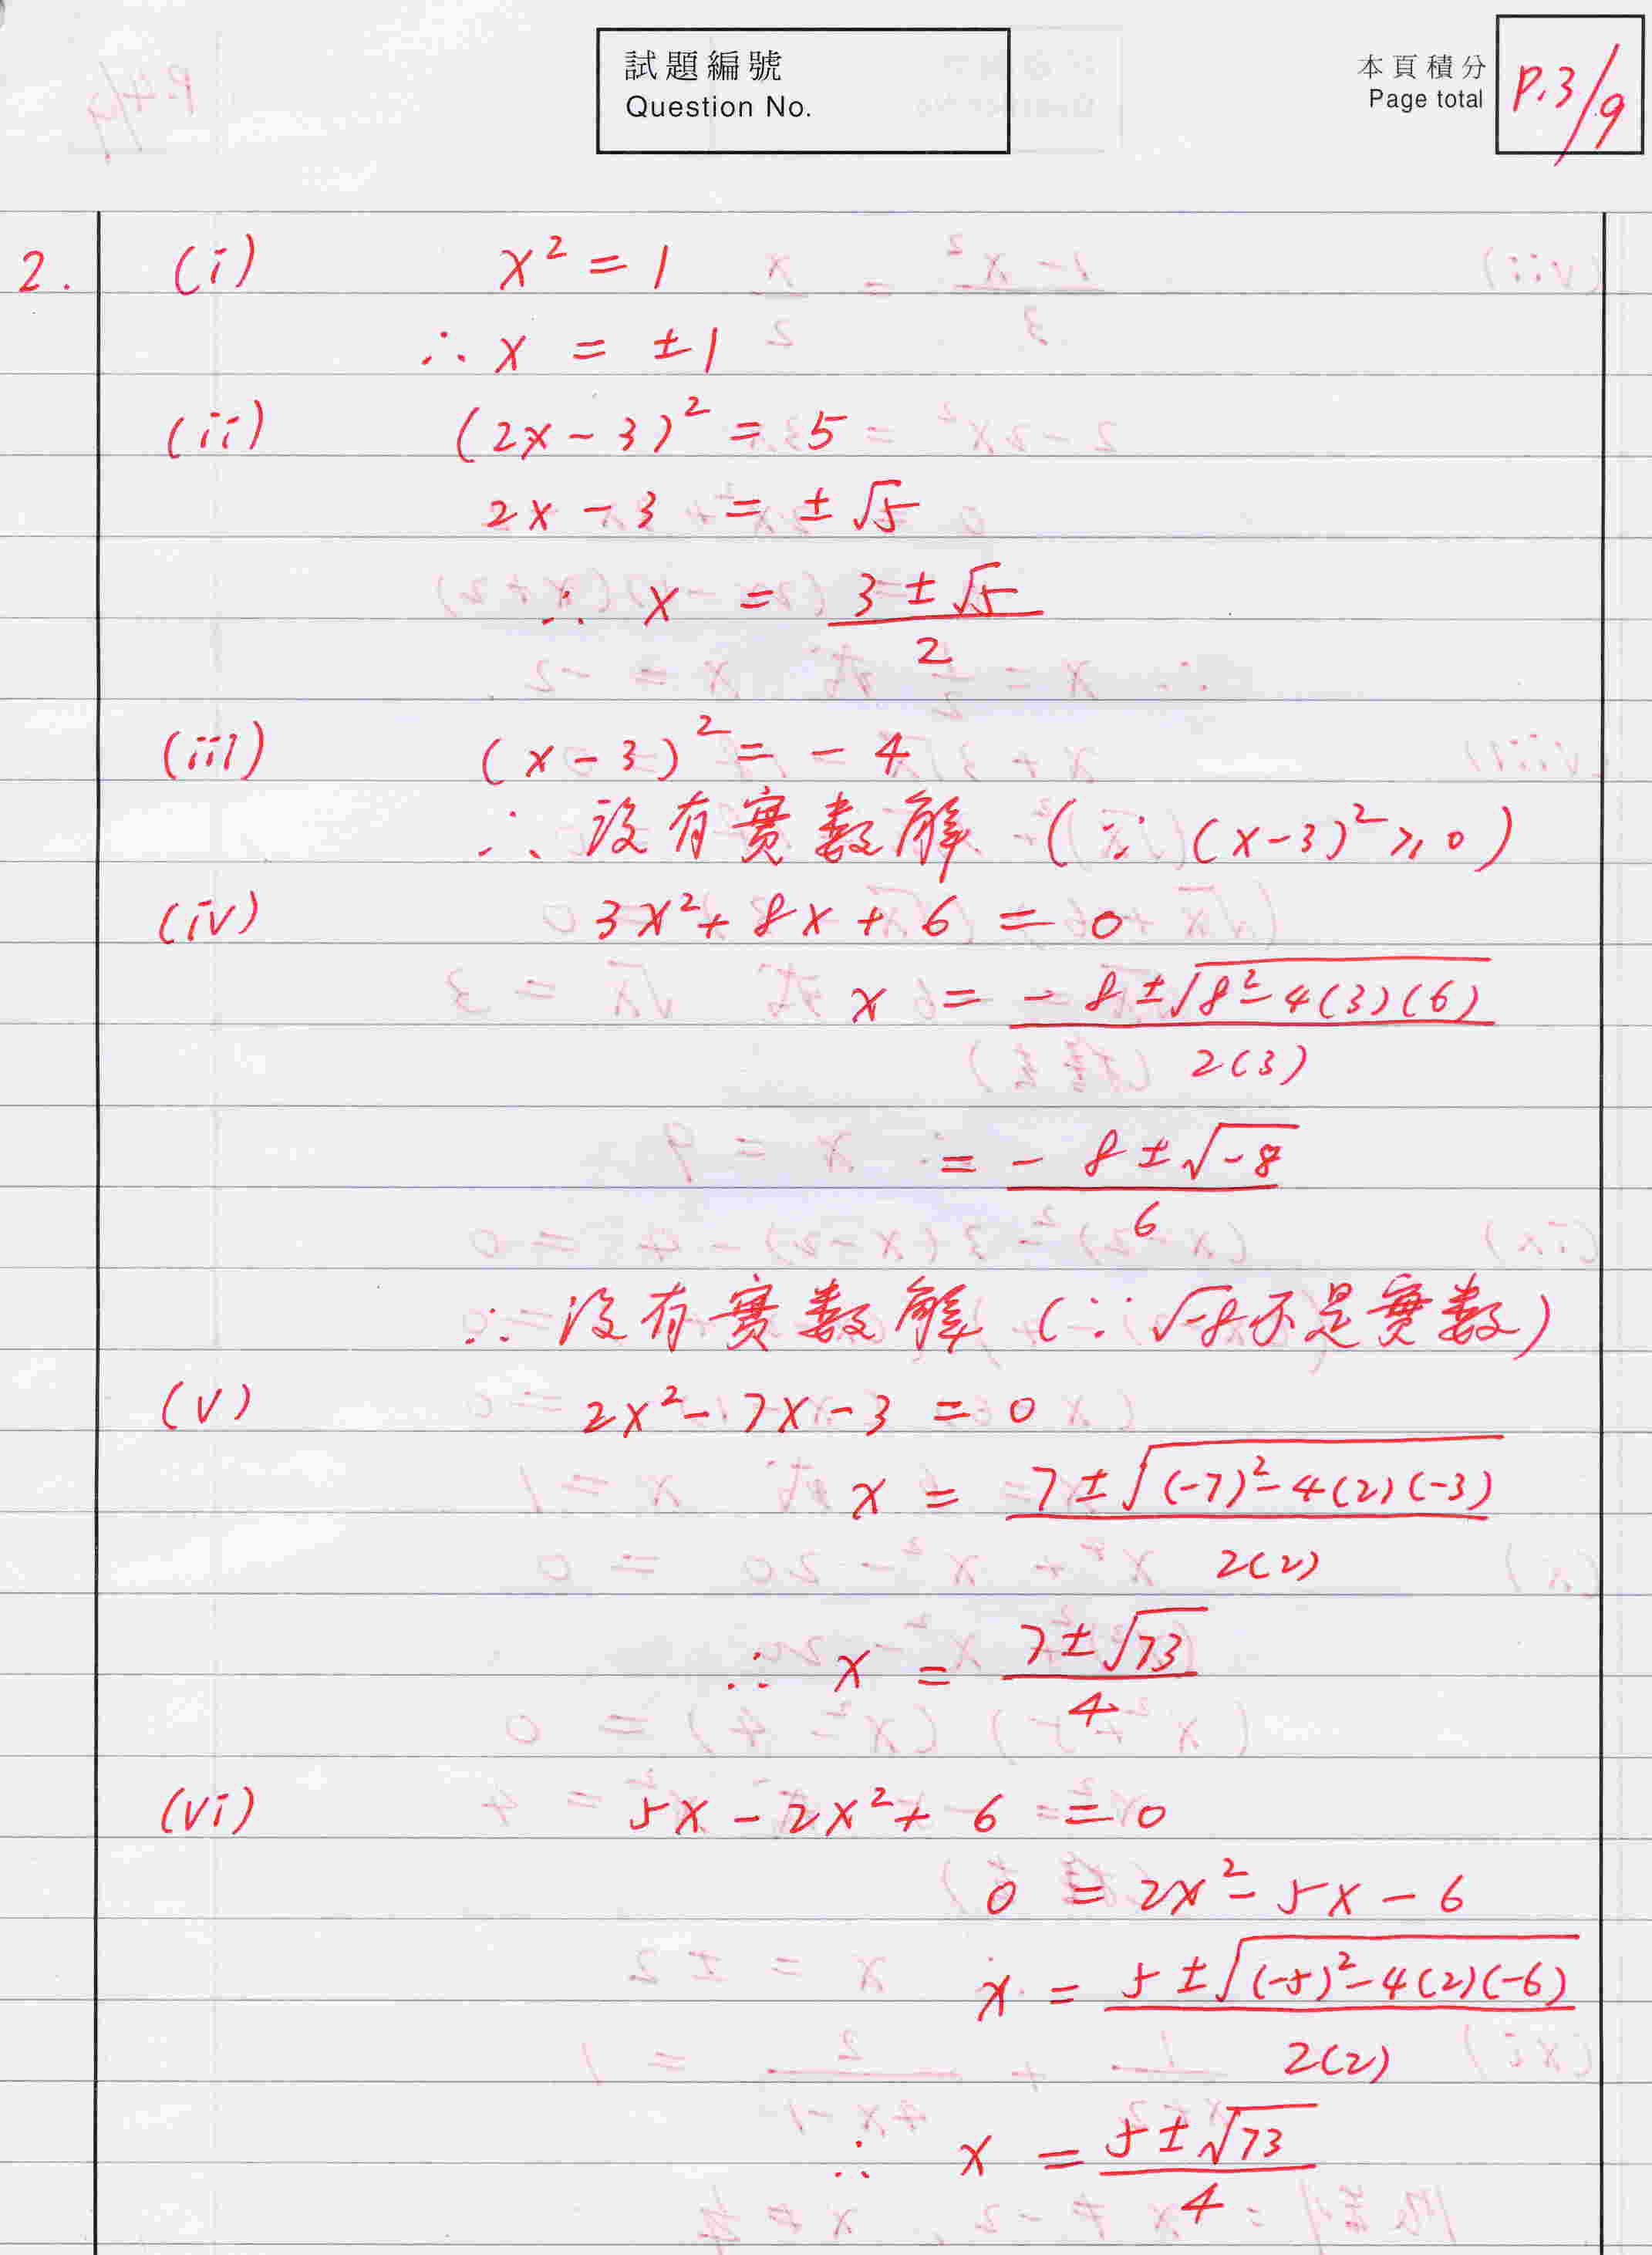 試題編號
Question No.
本頁積分
Page total
P.3/9
2. (i) x² = 1
∴ x = ±1
(ii) (2x - 3)² = 5
2x - 3 = ±√5
∴ x = (3 ± √5)/2
(iii) (x - 3)² = -4
∴ 沒有實數解 (∵ (x-3)² ≥ 0)
(iv) 3x² + 8x + 6 = 0
x = (-8 ± √(8² - 4(3)(6)))/2(3)
= (-8 ± √(-8))/6
∴ 沒有實數解 (∵ √-8不是實數)
(v) 2x² - 7x - 3 = 0
x = (7 ± √((-7)² - 4(2)(-3)))/2(2)
∴ x = (7 ± √73)/4
(vi) 5x - 2x² + 6 = 0
0 = 2x² - 5x - 6
x = (5 ± √((-5)² - 4(2)(-6)))/2(2)
∴ x = (5 ± √73)/4